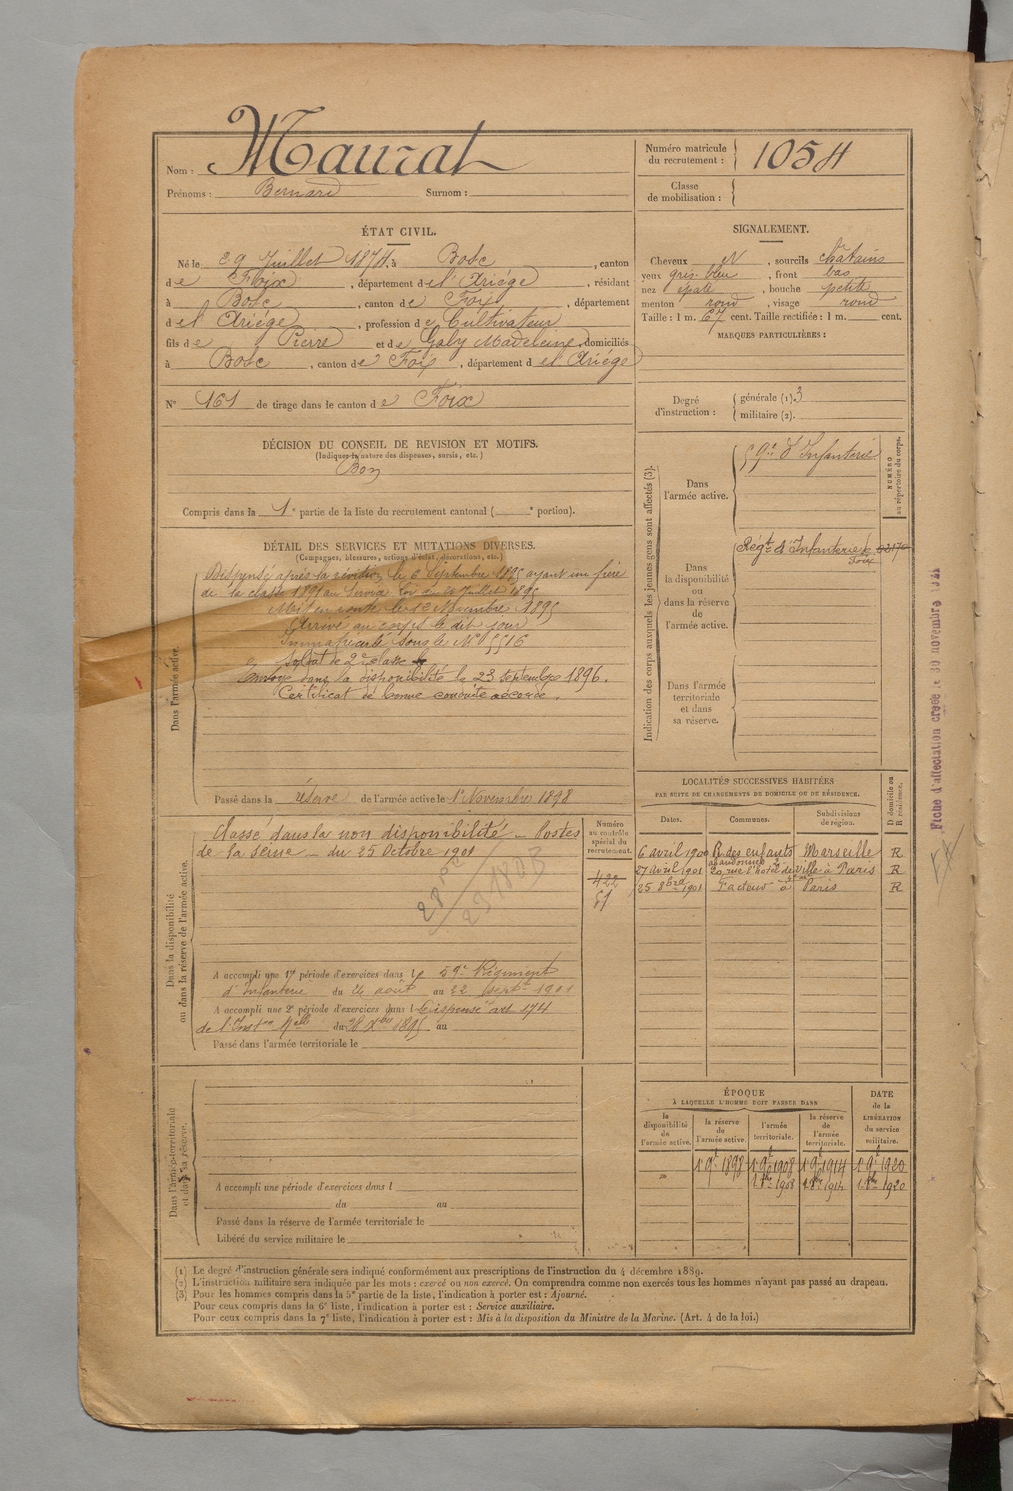 Nom : Maurat
Prénoms : Bernard Surnom :
Numéro matricule du recrutement : 1054
Classe de mobilisation :
ÉTAT CIVIL.
Né le 29 Juillet 1874, à Bosc, canton
de Foix, département de l'Ariége, résidant
à Bosc, canton de Foix, département
de l'Ariége, profession de Cultivateur
fils de Pierre et de Galy Madeleine, domiciliés
à Bosc, canton de Foix, département de l'Ariége
N° 161 de tirage dans le canton de Foix
SIGNALEMENT.
Cheveux N, sourcils châtains
yeux gris bleu, front bas
nez épaté, bouche petite
menton rond, visage rond
Taille : 1 m. 67 cent. Taille rectifiée : 1 m. cent.
MARQUES PARTICULIÈRES :
Degré d'instruction : générale (1). 3
militaire (2).
DÉCISION DU CONSEIL DE REVISION ET MOTIFS.
(Indiquer la nature des dispenses, sursis, etc.)
Bon
Compris dans la 1e partie de la liste du recrutement cantonal ( e portion).
DÉTAIL DES SERVICES ET MUTATIONS DIVERSES.
(Campagnes, blessures, actions d'éclat, décorations, etc.)
Dans l'armée active.
Dispensé après la révision le 6 Septembre 1895 ayant un frère
de la classe 1891 au service. Loi du 20 Juillet 1895
Mis en route le 12 Novembre 1895
Arrivé au corps le dit jour
Immatriculé sous le N° 5516
Soldat de 2e classe
Envoyé dans la disponibilité le 23 septembre 1896.
Certificat de bonne conduite accordé.
Passé dans la réserve de l'armée active le 1er Novembre 1898
Indication des corps auxquels les jeunes gens sont affectés (3).
Dans l'armée active.
59e d'Infanterie
NUMÉRO au répertoire du corps.
Dans la disponibilité ou dans la réserve de l'armée active.
Regt d'Infanterie de Foix
Dans l'armée territoriale et dans sa réserve.
Fiche d'affectation créée le 30 novembre
LOCALITÉS SUCCESSIVES HABITÉES
PAR SUITE DE CHANGEMENTS DE DOMICILE OU DE RÉSIDENCE.
D domicile ou R résidence.
Dates. Communes. Subdivisions de région.
6 avril 1900 R. des enfants abandonnés 2 Marseille R
27 avril 1901 20, rue l'hotel de Ville à Paris R
25 8bre 1901 Facteur à Paris R
Dans la disponibilité ou dans la réserve de l'armée active.
Classé dans la non disponibilité – Postes
de la Seine – du 25 Octobre 1901
Numéro au contrôle spécial du recrutement.
422
51
A accompli une 1re période d'exercices dans le 59e Régiment
d'Infanterie du 26 août au 22 septre 1901
A accompli une 2e période d'exercices dans l Dispensé art. 174
de l'Inston Melle du 28 Xbre 1895 au
Passé dans l'armée territoriale le
Dans l'armée territoriale et dans sa réserve.
A accompli une période d'exercices dans l
du au
Passé dans la réserve de l'armée territoriale le
Libéré du service militaire le
ÉPOQUE
À LAQUELLE L'HOMME DOIT PASSER DANS
DATE de la LIBÉRATION du service militaire.
la disponibilité de l'armée active. la réserve de l'armée active. l'armée territoriale. la réserve de l'armée territoriale.
» 1er 9bre 1898 1er 9bre 1908 1er 9bre 1914 1er 9bre 1920
(1) Le degré d'instruction générale sera indiqué conformément aux prescriptions de l'instruction du 4 décembre 1889.
(2) L'instruction militaire sera indiquée par les mots : exercé ou non exercé. On comprendra comme non exercés tous les hommes n'ayant pas passé au drapeau.
(3) Pour les hommes compris dans la 5e partie de la liste, l'indication à porter est : Ajourné.
Pour ceux compris dans la 6e liste, l'indication à porter est : Service auxiliaire.
Pour ceux compris dans la 7e liste, l'indication à porter est : Mis à la disposition du Ministre de la Marine. (Art. 4 de la loi.)